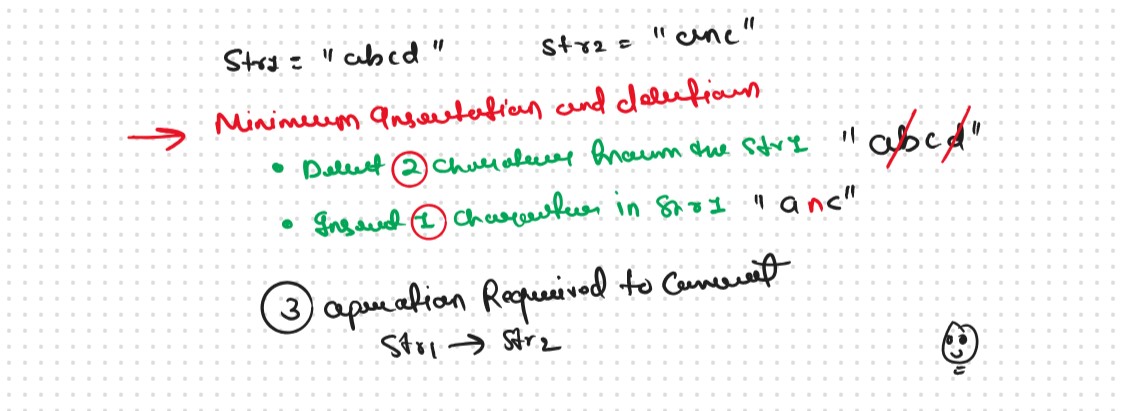 Str1 = "abcd"   str2 = "anc"
→ Minimum Insertation and deletion
• Delete 2 Characters from the Str1 "abcd"
• Insert 1 Character in Str1 "anc"
3 operation Required to Convert
Str1 → Str2